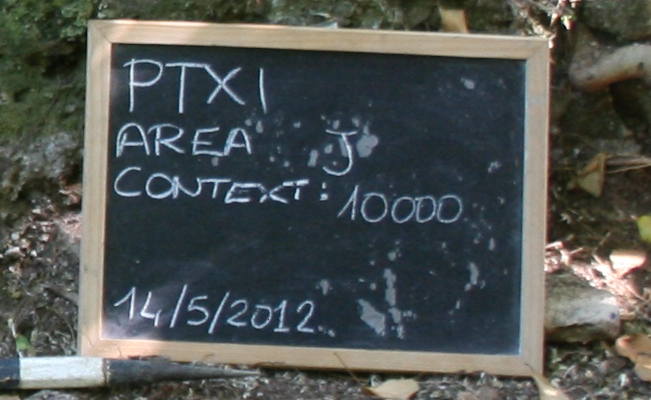 PTXI
AREA J
CONTEXT: 10000
14/5/2012